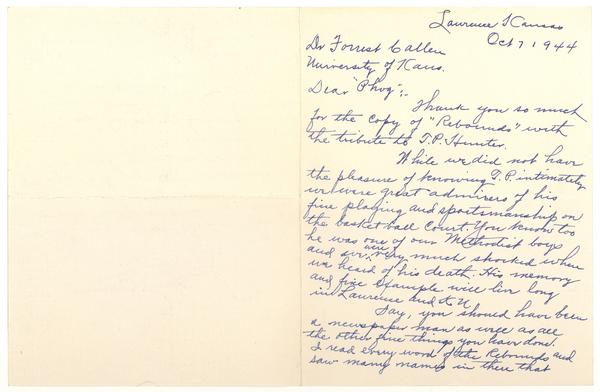 Lawrence Kansas
Oct 7 1944
Dr Forrest C Allen
University of Kans.
Dear "Phog":-
Thank you so much
for the copy of "Rebounds" with
the tribute to T.P. Hunter.
While we did not have
the pleasure of knowing T.P. intimately
we were great admirers of his
fine playing and sportsmanship on
the basket ball court. You know too
he was one of our Methodist boys
and we were very much shocked when
we heard of his death. His memory
and fine example will live long
in Lawrence and K U
Say, you should have been
a newspaper man as well as all
the other fine things you have done.
I read every word of the Rebounds and
saw many names in there that